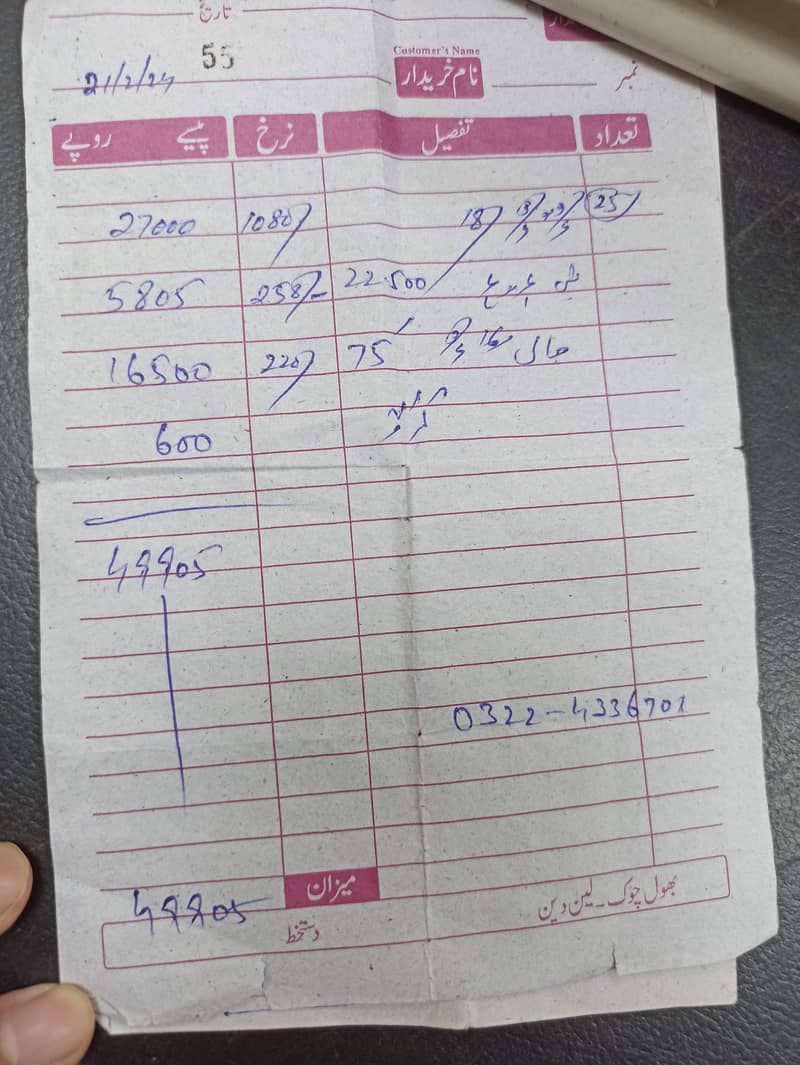 تاریخ
55
Customer's Name
21/2/24 نام خریدار نمبر
تعداد تفصیل نرخ پیسے روپے
25 18 1080/ 27000
22.500 258/- 5805
جالی 75 220/ 16500
کرایہ 600
49905
0322-4336701
میزان 49905
بھول چوک۔لین دین دستخط